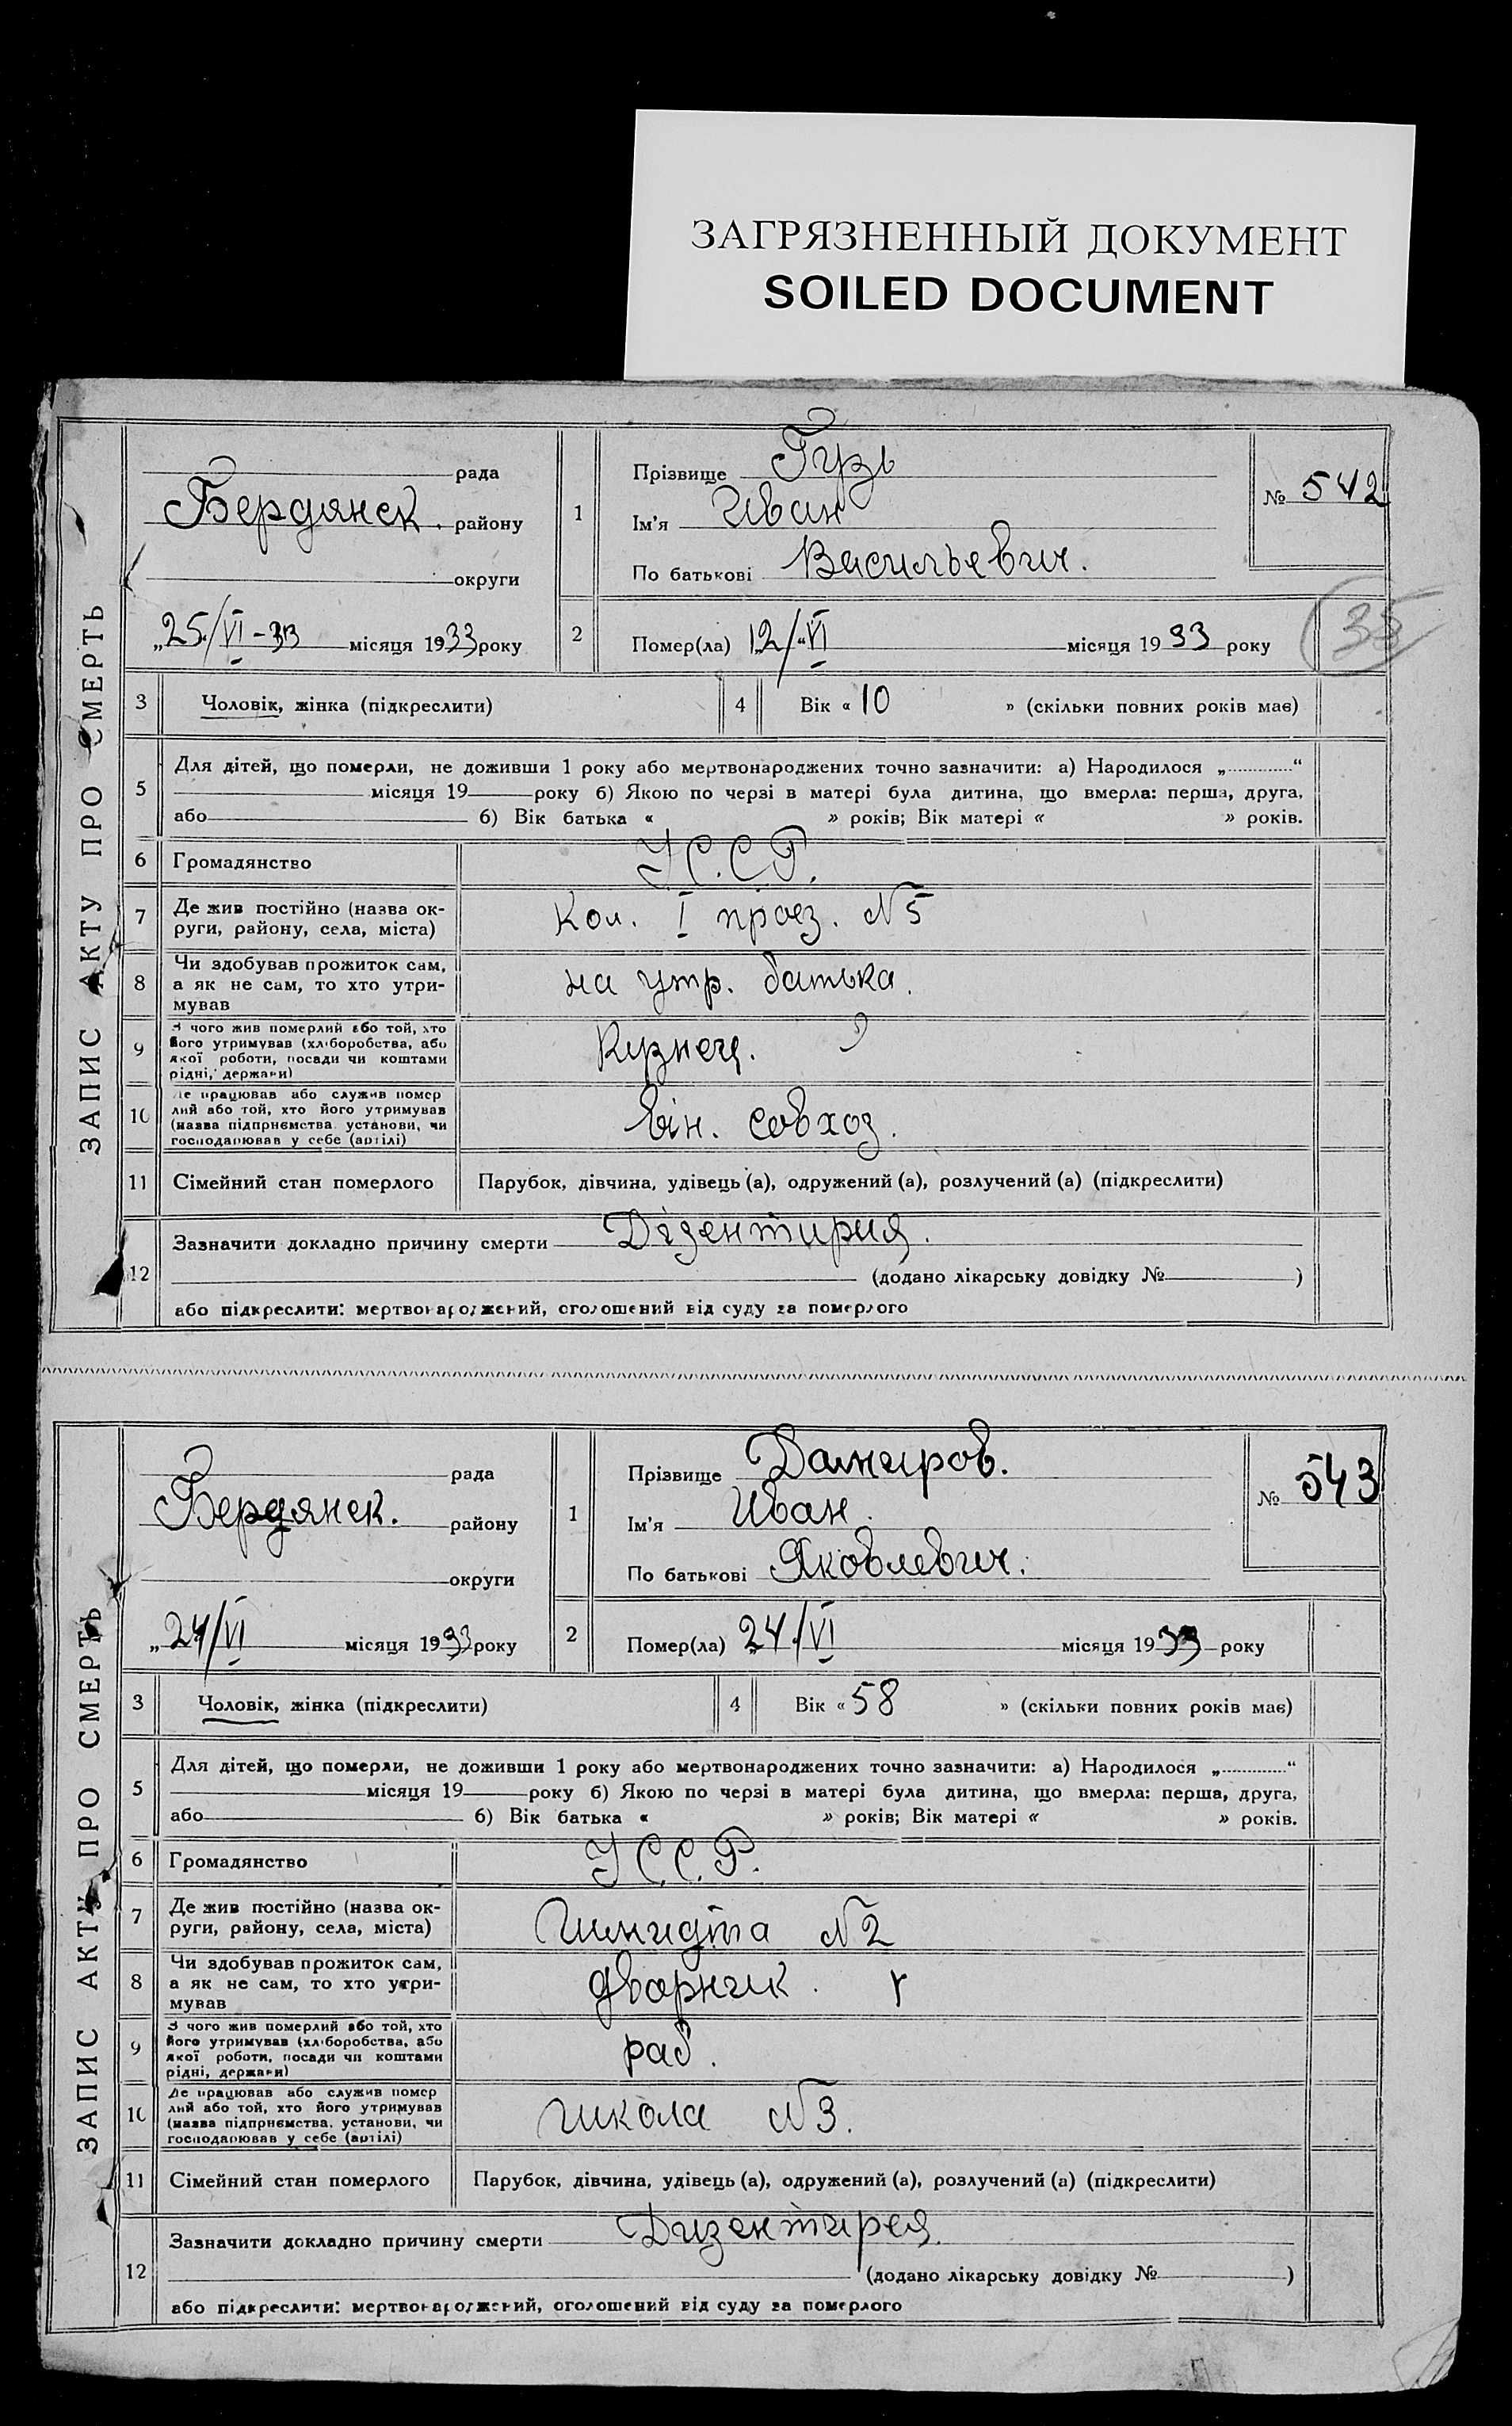 ЗАГРЯЗНЕННЫЙ ДОКУМЕНТ
SOILED DOCUMENT
ЗАПИС АКТУ ПРО СМЕРТЬ
рада
Бердянск. району
округи
„25/VI-33 місяця 1933 року
1
Прізвище Гузь
Ім'я Иван
По батькові Васильевич.
№ 542
2
Помер(ла) 12/VI місяця 1933 року
35
3
Чоловік, жінка (підкреслити)
4
Вік « 10 » (скільки повних років має)
5
Для дітей, що померли, не доживши 1 року або мертвонароджених точно зазначити: а) Народилося „ “
місяця 19 року б) Якою по черзі в матері була дитина, що вмерла: перша, друга,
або б) Вік батька « » років; Вік матері « » років.
6
Громадянство
У.С.С.Р.
7
Де жив постійно (назва ок-
руги, району, села, міста)
Кол. I проез. №5
8
Чи здобував прожиток сам,
а як не сам, то хто утри-
мував
на утр. батька.
9
З чого жив померлий або той, хто
його утримував (хліборобства, або
якої роботи, посади чи коштами
рідні, держави)
Кузнец.
10
Де працював або служив помер
лий або той, хто його утримував
(назва підприємства, установи, чи
господарював у себе (артілі)
Він. совхоз.
11
Сімейний стан померлого
Парубок, дівчина, удівець (а), одружений (а), розлучений (а) (підкреслити)
12
Зазначити докладно причину смерти Дізентирия.
(додано лікарську довідку № )
або підкреслити: мертвонароджений, оголошений від суду за померлого
ЗАПИС АКТУ ПРО СМЕРТЬ
рада
Бердянск. району
округи
„24/VI місяця 1933 року
1
Прізвище Дамиров.
Ім'я Иван.
По батькові Яковлевич.
№ 543
2
Помер(ла) 24/VI місяця 1933 року
3
Чоловік, жінка (підкреслити)
4
Вік « 58 » (скільки повних років має)
5
Для дітей, що померли, не доживши 1 року або мертвонароджених точно зазначити: а) Народилося „ “
місяця 19 року б) Якою по черзі в матері була дитина, що вмерла: перша, друга,
або б) Вік батька « » років; Вік матері « » років.
6
Громадянство
У.С.С.Р.
7
Де жив постійно (назва ок-
руги, району, села, міста)
Шмидта №2
8
Чи здобував прожиток сам,
а як не сам, то хто утри-
мував
дворник.
9
З чого жив померлий або той, хто
його утримував (хліборобства, або
якої роботи, посади чи коштами
рідні, держави)
раб.
10
Де працював або служив помер
лий або той, хто його утримував
(назва підприємства, установи, чи
господарював у себе (артілі)
школа №3.
11
Сімейний стан померлого
Парубок, дівчина, удівець (а), одружений (а), розлучений (а) (підкреслити)
12
Зазначити докладно причину смерти Дизентирея.
(додано лікарську довідку № )
або підкреслити: мертвонароджений, оголошений від суду за померлого